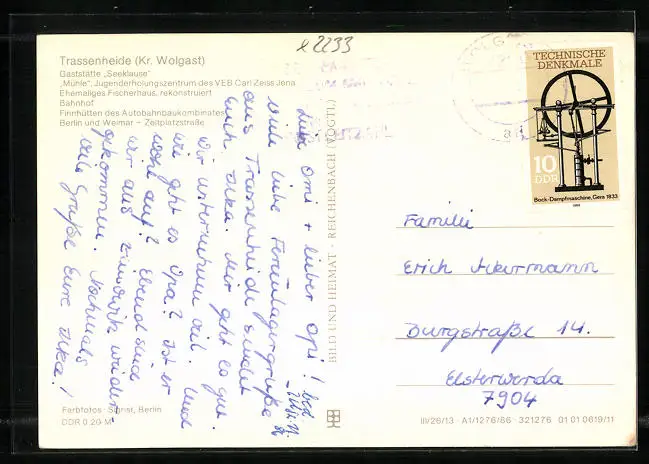 x 2233
Trassenheide (Kr. Wolgast)
Gaststätte „Seeklause"
„Mühle", Jugenderholungszentrum des VEB Carl Zeiss Jena
Ehemaliges Fischerhaus, rekonstruiert
Bahnhof
Finnhütten des Autobahnbaukombinates
Berlin und Weimar – Zeltplatzstraße
Liebe Omi + lieber Opi!
Viele liebe Ferienlagergrüße
aus Trassenheide sendet
Euch Ilka. Mir geht es gut.
Wir unternehmen viel. Und
wie geht es Opa? Ist er
wohl auf? Ebend sind
wir aus Zinnowitz wieder-
gekommen. Nochmals
viele Grüße Eure Ilka!
BILD UND HEIMAT · REICHENBACH (VOGTL)
TECHNISCHE
DENKMALE
10
DDR
Bock-Dampfmaschine, Gera 1833
1985
Familie
Erich Ackermann
Burgstraße 14.
Elsterwerda
7904
Farbfotos: Signist, Berlin
DDR 0,20 M
III/26/13 A1/1276/86 321276 01 01 0619/11